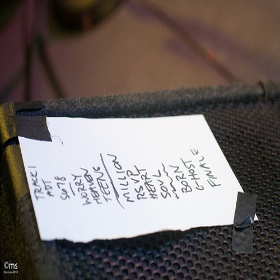 TRACK 1
ADT
SO 78
WORRY
HEAVEN
TEENS
MILLION
RSVP
HEART
SOUL
BORN
GHOST
FINALE
©ms